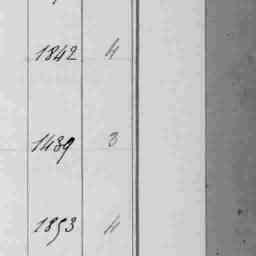 1842 4
1439 3
1853 4